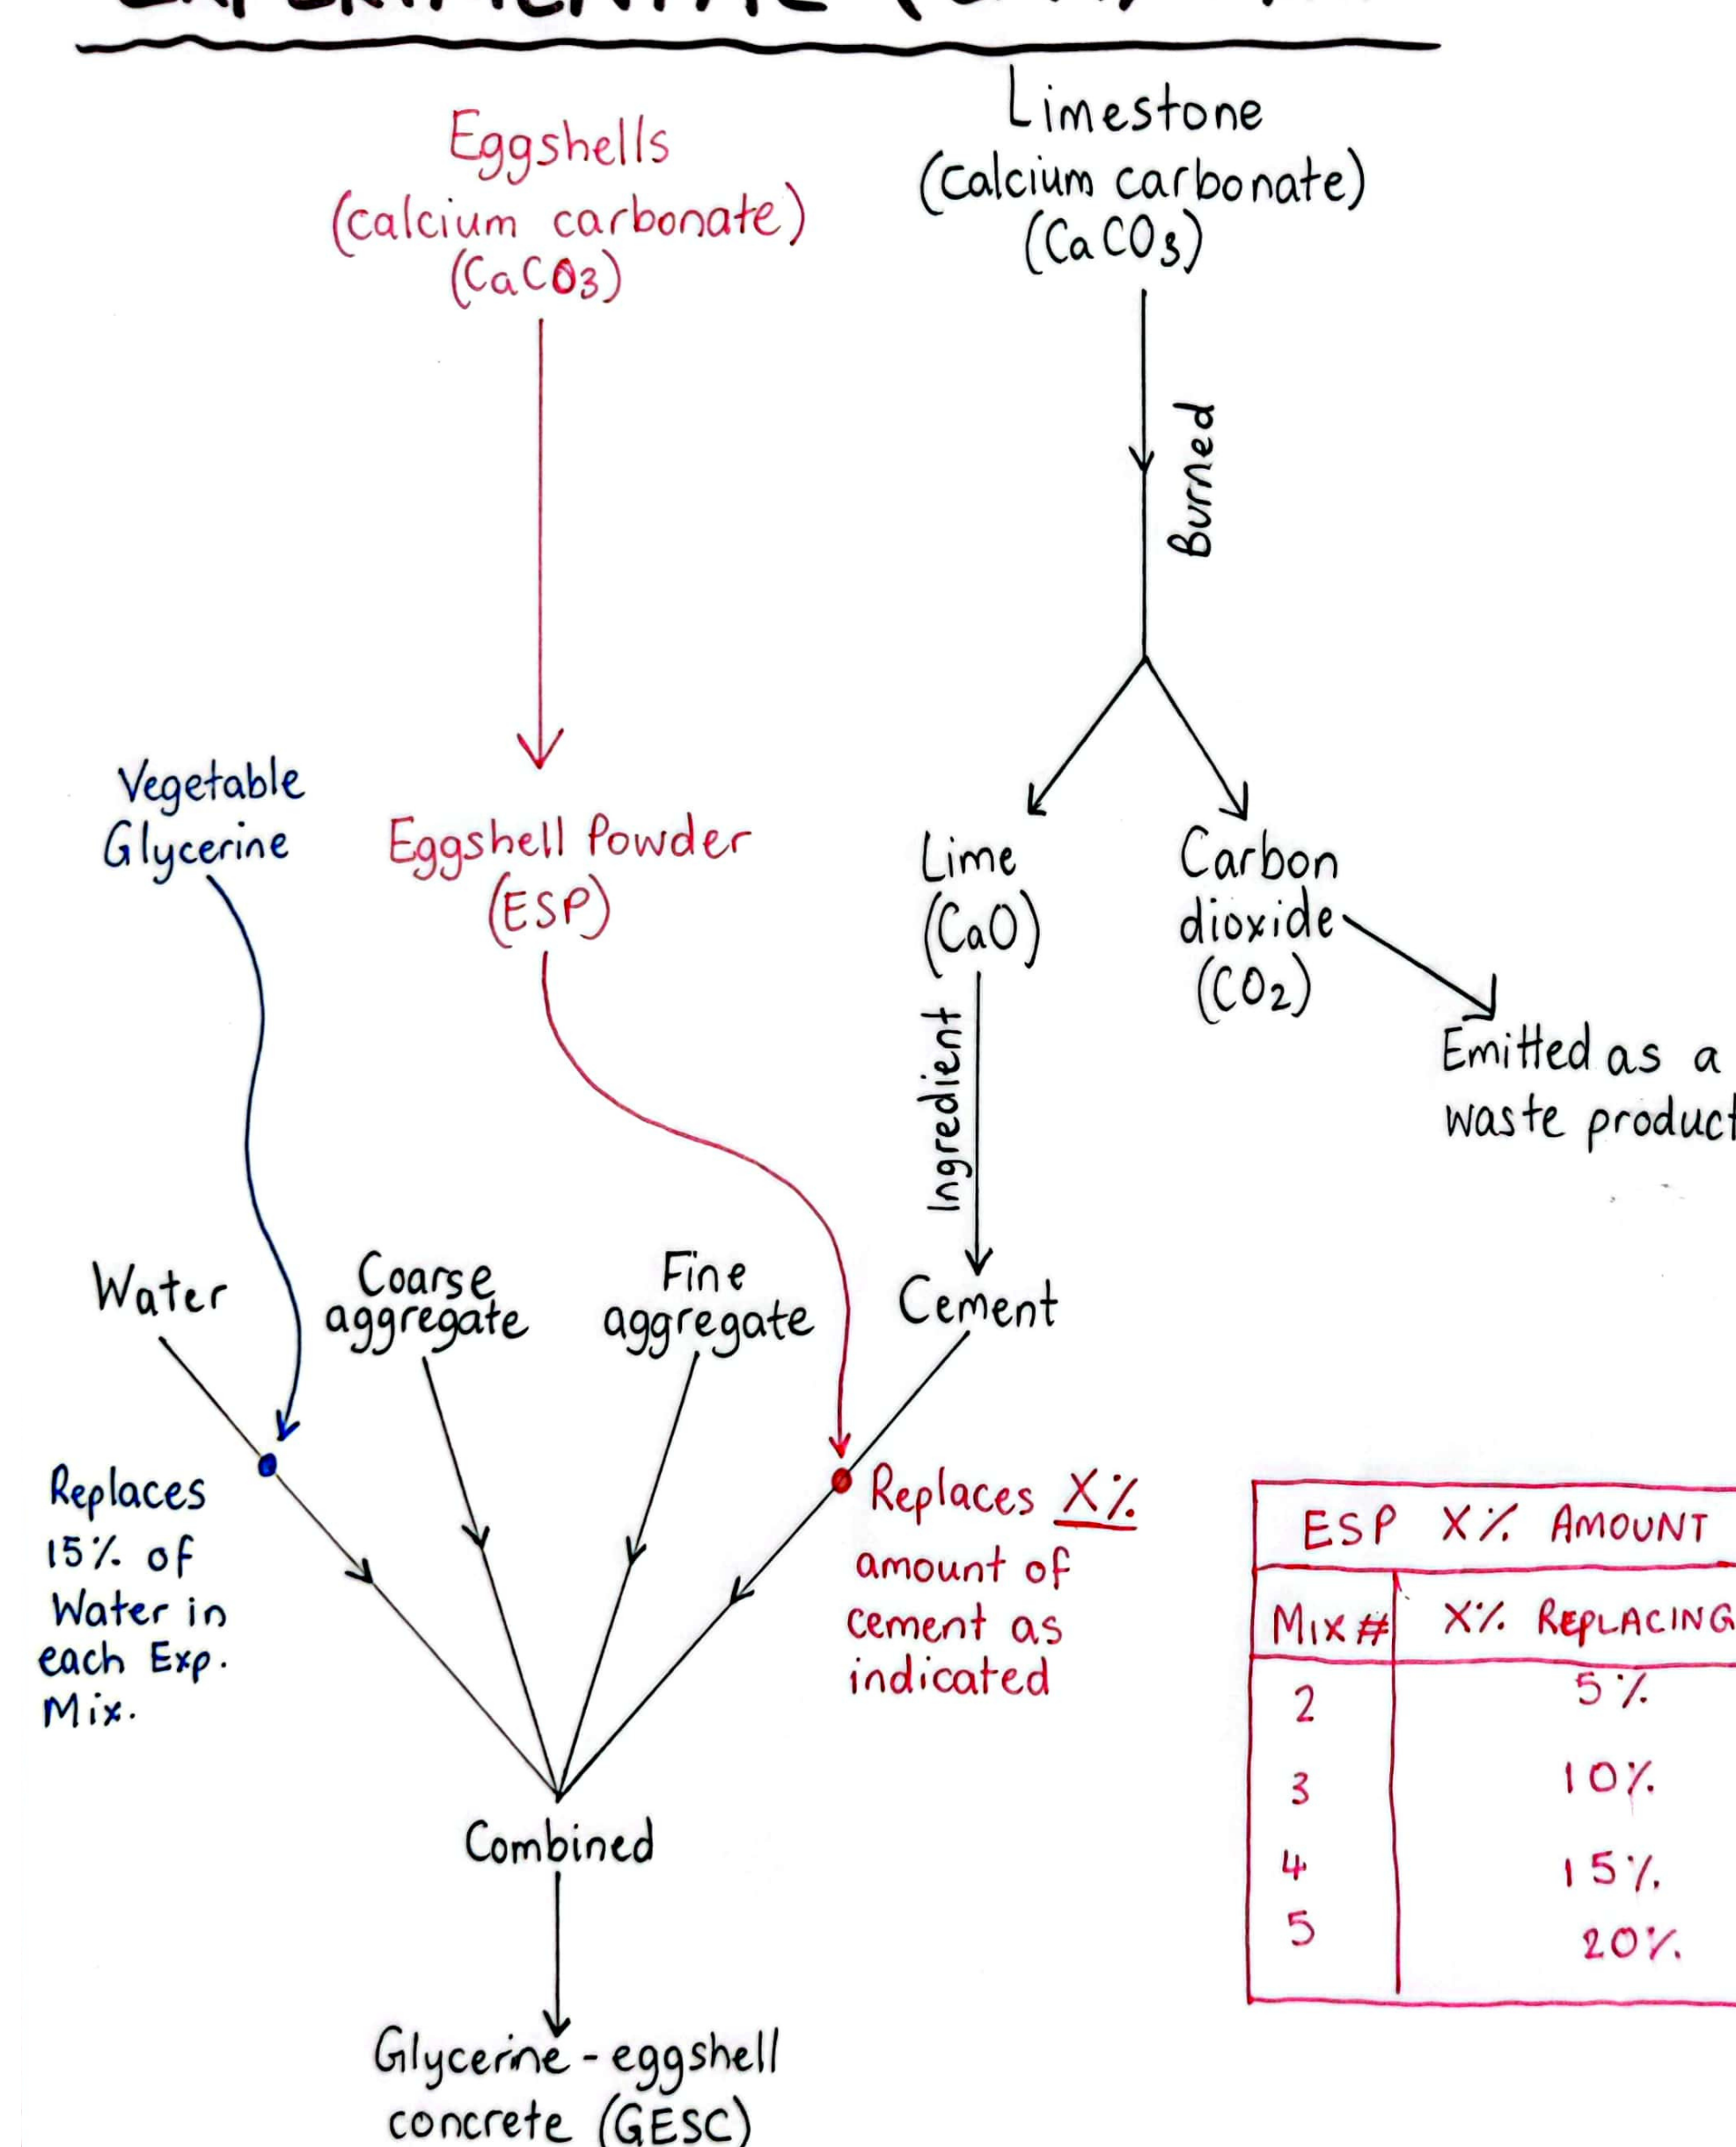 Eggshells
(calcium carbonate)
(CaCO3)
Limestone
(calcium carbonate)
(CaCO3)
Burned
Vegetable
Glycerine
Eggshell Powder
(ESP)
Lime
(CaO)
Carbon
dioxide
(CO2)
Emitted as a
waste product
Ingredient
Water
Coarse
aggregate
Fine
aggregate
Cement
Replaces
15% of
Water in
each Exp.
Mix.
Replaces X%
amount of
cement as
indicated
ESP X% AMOUNT
MIX # X% REPLACING
2 5%
3 10%
4 15%
5 20%
Combined
Glycerine - eggshell
concrete (GESC)